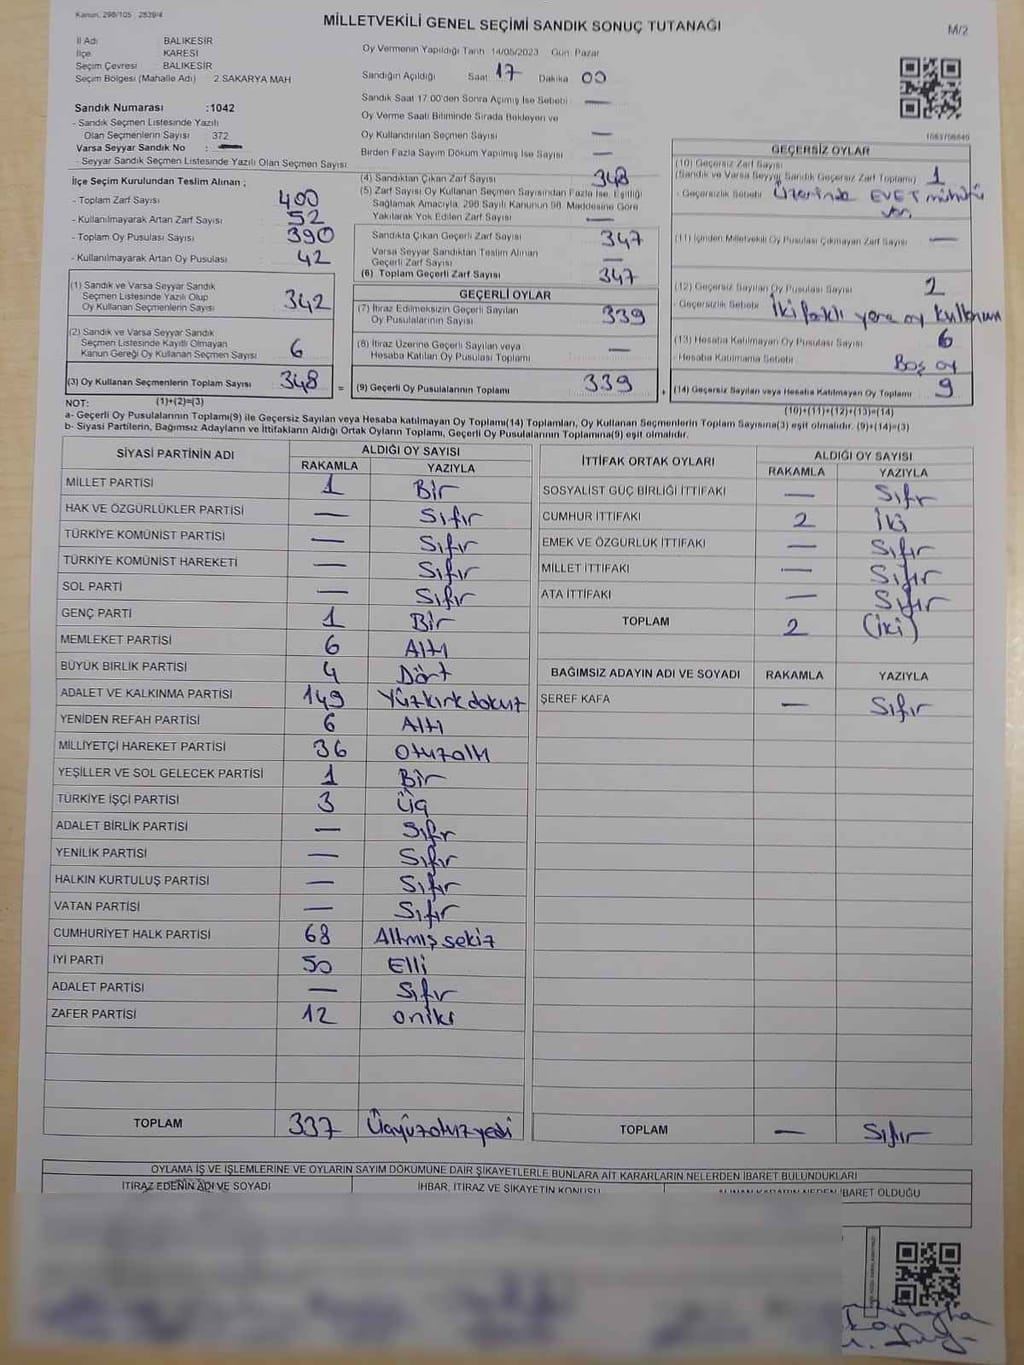 Kanun, 298/105 2839/4
MİLLETVEKİLİ GENEL SEÇİMİ SANDIK SONUÇ TUTANAĞI
M/2
İl Adı BALIKESİR
İlçe KARESİ
Seçim Çevresi BALIKESİR
Seçim Bölgesi (Mahalle Adı) 2.SAKARYA MAH
Oy Vermenin Yapıldığı Tarih 14/05/2023 Gün: Pazar
Sandığın Açıldığı Saat 17 Dakika 00
Sandık Saat 17:00'den Sonra Açımış İse Sebebi —
Oy Verme Saati Bitiminde Sırada Bekleyen ve
Oy Kullandırılan Seçmen Sayısı —
Birden Fazla Sayım Döküm Yapılmış İse Sayısı —
Sandık Numarası :1042
- Sandık Seçmen Listesinde Yazılı
Olan Seçmenlerin Sayısı : 372
Varsa Seyyar Sandık No : —
- Seyyar Sandık Seçmen Listesinde Yazılı Olan Seçmen Sayısı:
İlçe Seçim Kurulundan Teslim Alınan ;
- Toplam Zarf Sayısı 400
- Kullanılmayarak Artan Zarf Sayısı 52
- Toplam Oy Pusulası Sayısı 390
- Kullanılmayarak Artan Oy Pusulası 42
(1) Sandık ve Varsa Seyyar Sandık
Seçmen Listesinde Yazılı Olup
Oy Kullanan Seçmenlerin Sayısı 342
(2) Sandık ve Varsa Seyyar Sandık
Seçmen Listesinde Kayıtlı Olmayan
Kanun Gereği Oy Kullanan Seçmen Sayısı 6
(3) Oy Kullanan Seçmenlerin Toplam Sayısı 348
(4) Sandıktan Çıkan Zarf Sayısı 348
(5) Zarf Sayısı Oy Kullanan Seçmen Sayısından Fazla İse, Eşitliği
Sağlamak Amacıyla, 298 Sayılı Kanunun 98. Maddesine Göre
Yakılarak Yok Edilen Zarf Sayısı —
Sandıkta Çıkan Geçerli Zarf Sayısı 347
Varsa Seyyar Sandıktan Teslim Alınan
Geçerli Zarf Sayısı —
(6) Toplam Geçerli Zarf Sayısı 347
GEÇERLİ OYLAR
(7) İtiraz Edilmeksizin Geçerli Sayılan
Oy Pusulalarının Sayısı 339
(8) İtiraz Üzerine Geçerli Sayılan veya
Hesaba Katılan Oy Pusulası Toplamı —
= (9) Geçerli Oy Pusulalarının Toplamı 339
GEÇERSİZ OYLAR
(10) Geçersiz Zarf Sayısı
(Sandık ve Varsa Seyyar Sandık Geçersiz Zarf Toplamı) 1
- Geçersizlik Sebebi Üzerinde EVET mührü
var.
(11) İçinden Milletvekili Oy Pusulası Çıkmayan Zarf Sayısı —
(12) Geçersiz Sayılan Oy Pusulası Sayısı 2
- Geçersizlik Sebebi İki farklı yere oy kullanım
(13) Hesaba Katılmayan Oy Pusulası Sayısı 6
- Hesaba Katılmama Sebebi Boş oy
+ (14) Geçersiz Sayılan veya Hesaba Katılmayan Oy Toplamı 9
NOT: (1)+(2)=(3)
(10)+(11)+(12)+(13)=(14)
a- Geçerli Oy Pusulalarının Toplamı(9) ile Geçersiz Sayılan veya Hesaba katılmayan Oy Toplamı(14) Toplamları, Oy Kullanan Seçmenlerin Toplam Sayısına(3) eşit olmalıdır. (9)+(14)=(3)
b- Siyasi Partilerin, Bağımsız Adayların ve İttifakların Aldığı Ortak Oyların Toplamı, Geçerli Oy Pusulalarının Toplamına(9) eşit olmalıdır.
SİYASİ PARTİNİN ADI ALDIĞI OY SAYISI
RAKAMLA YAZIYLA
MİLLET PARTİSİ 1 Bir
HAK VE ÖZGÜRLÜKLER PARTİSİ — Sıfır
TÜRKİYE KOMÜNİST PARTİSİ — Sıfır
TÜRKİYE KOMÜNİST HAREKETİ — Sıfır
SOL PARTİ — Sıfır
GENÇ PARTİ 1 Bir
MEMLEKET PARTİSİ 6 Altı
BÜYÜK BİRLİK PARTİSİ 4 Dört
ADALET VE KALKINMA PARTİSİ 149 Yüzkırkdokuz
YENİDEN REFAH PARTİSİ 6 Altı
MİLLİYETÇİ HAREKET PARTİSİ 36 Otuzaltı
YEŞİLLER VE SOL GELECEK PARTİSİ 1 Bir
TÜRKİYE İŞÇİ PARTİSİ 3 Üç
ADALET BİRLİK PARTİSİ — Sıfır
YENİLİK PARTİSİ — Sıfır
HALKIN KURTULUŞ PARTİSİ — Sıfır
VATAN PARTİSİ — Sıfır
CUMHURİYET HALK PARTİSİ 68 Altmışsekiz
İYİ PARTİ 50 Elli
ADALET PARTİSİ — Sıfır
ZAFER PARTİSİ 12 oniki
TOPLAM 337 Üçyüzotuzyedi
İTTİFAK ORTAK OYLARI ALDIĞI OY SAYISI
RAKAMLA YAZIYLA
SOSYALİST GÜÇ BİRLİĞİ İTTİFAKI — Sıfır
CUMHUR İTTİFAKI 2 İki
EMEK VE ÖZGÜRLÜK İTTİFAKI — Sıfır
MİLLET İTTİFAKI — Sıfır
ATA İTTİFAKI — Sıfır
TOPLAM 2 (İki)
BAĞIMSIZ ADAYIN ADI VE SOYADI RAKAMLA YAZIYLA
ŞEREF KAFA — Sıfır
TOPLAM — Sıfır
OYLAMA İŞ VE İŞLEMLERİNE VE OYLARIN SAYIM DÖKÜMÜNE DAİR ŞİKAYETLERLE BUNLARA AİT KARARLARIN NELERDEN İBARET BULUNDUKLARI
İTİRAZ EDENİN ADI VE SOYADI
İHBAR, İTİRAZ VE ŞİKAYETİN KONUSU
ALINAN KARARIN NEDEN İBARET OLDUĞU